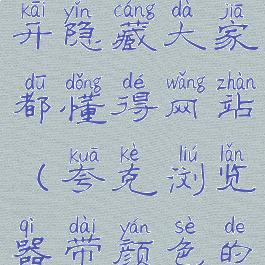 kāi yǐn cáng dà jiā
开隐藏大家
dū dǒng dé wǎng zhàn
都懂得网站
kuā kè liú lǎn
（夸克浏览
qì dài yán sè de
器带颜色的